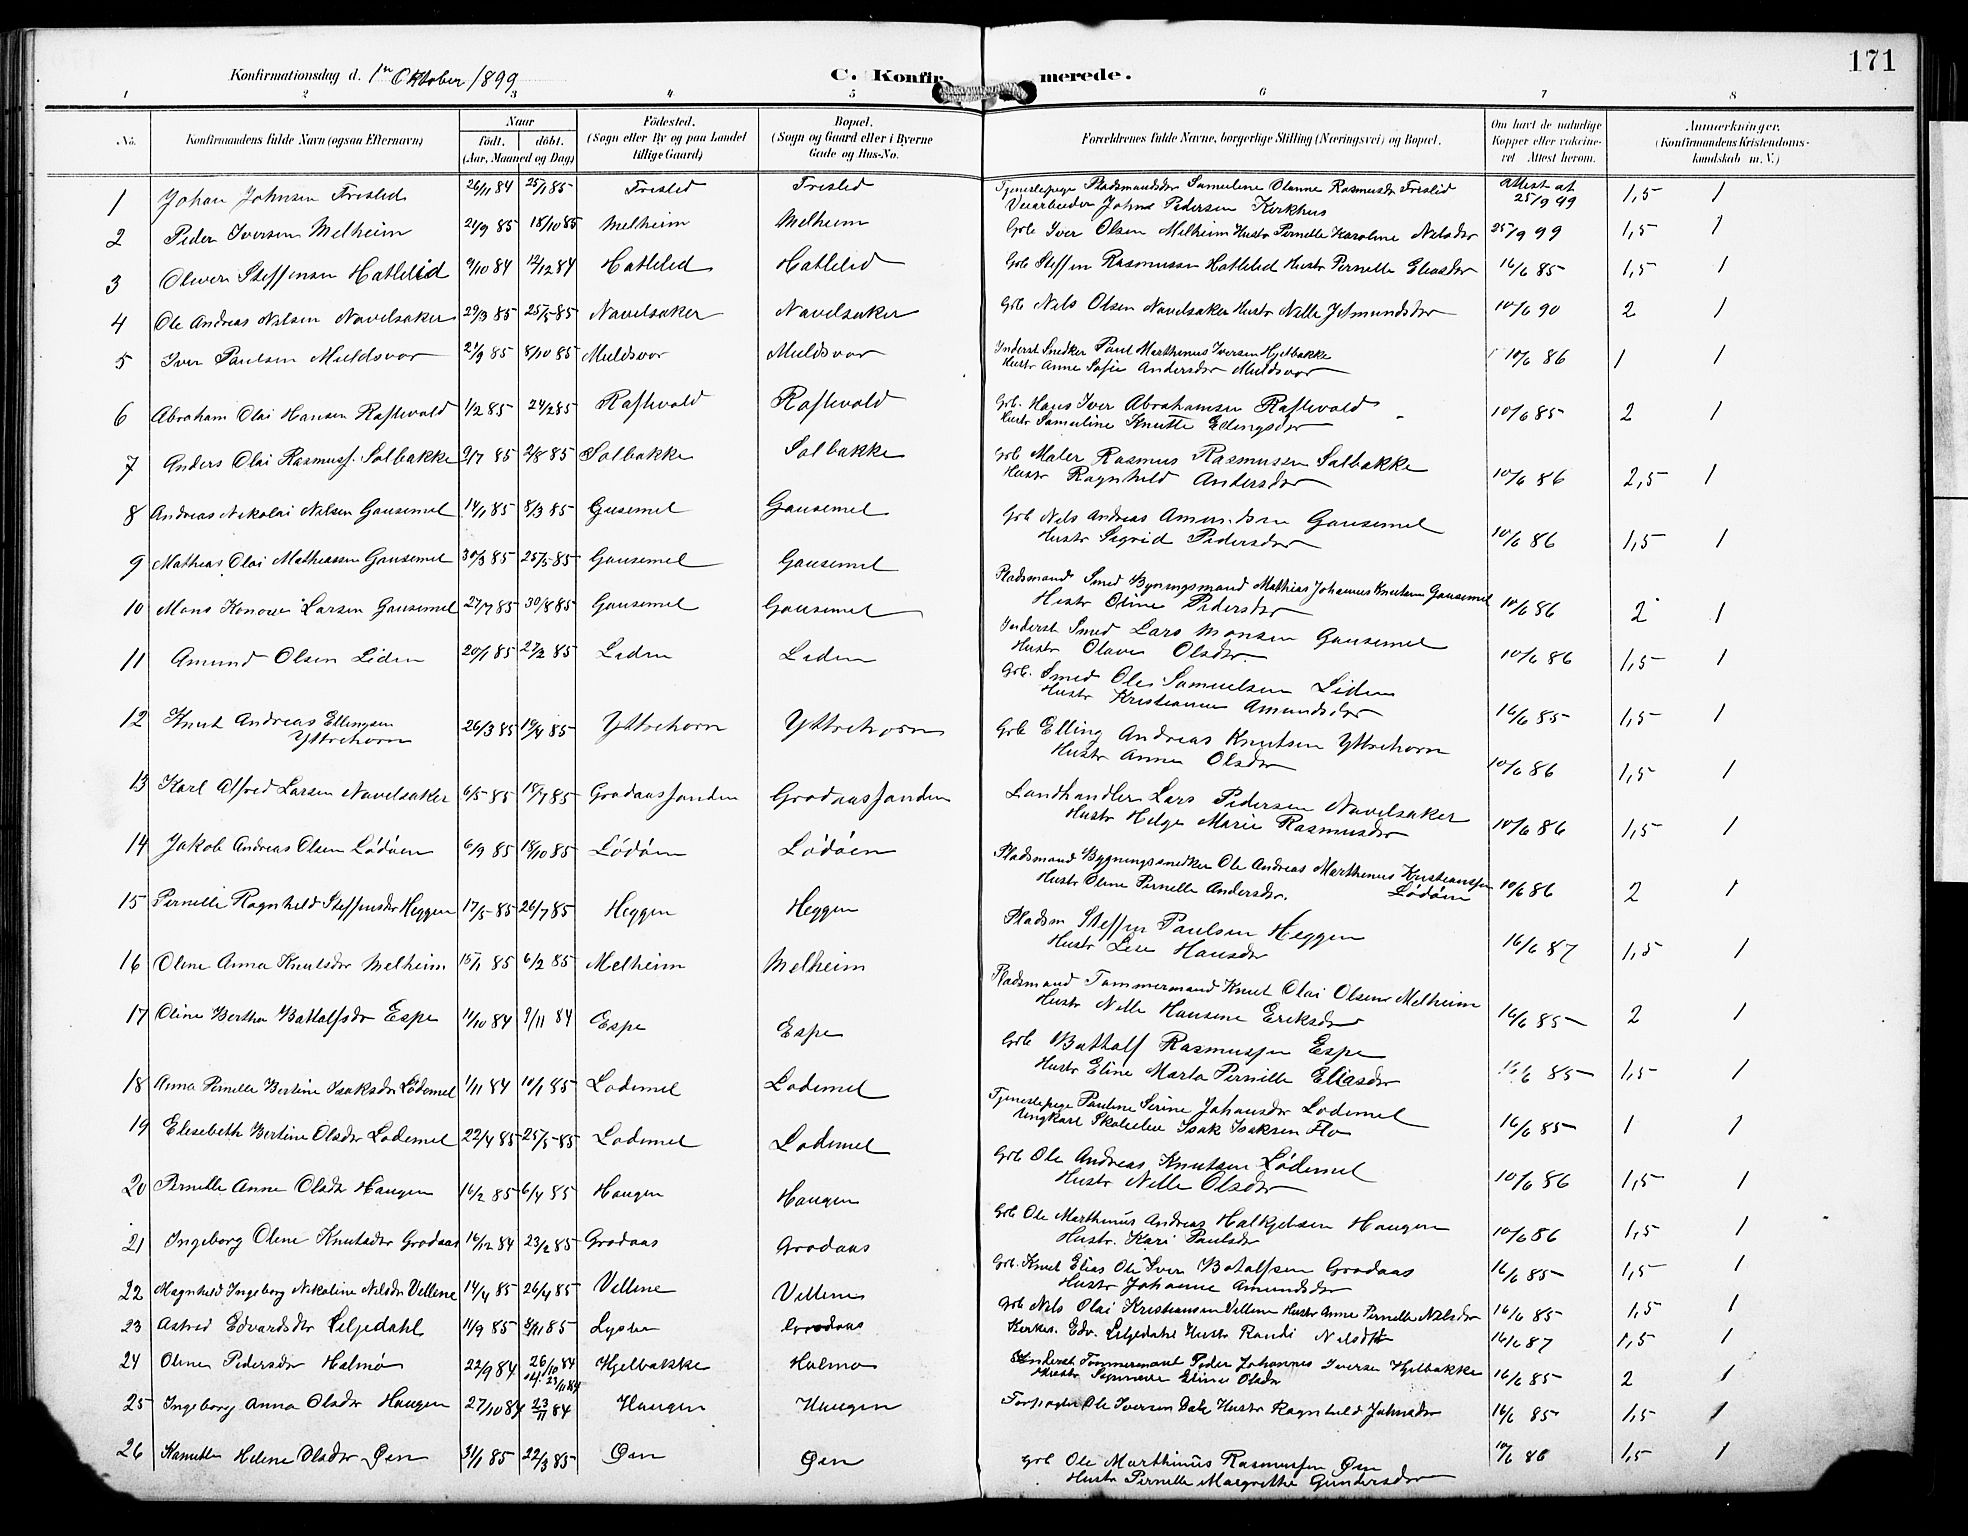 171
Konfirmationsdag d. 1ste Oktober 1899
C. Konfirmerede.
1 2 3 4 5 6 7 8
No. Konfirmandens fulde Navn (ogsaa Efternavn) Naar født. døbt. (Aar, Maaned og Dag) Fødested. (Sogn eller By og paa Landet tillige Gaard) Bopæl. (Sogn og Gaard eller i Byerne Gade og Hus-No.) Forældrenes fulde Navne, borgerlige Stilling (Næringsvei) og Bopæl. Om havt de naturlige Kopper eller vakcineret. Attest herom. Anmærkninger. (Konfirmandens Kristendomskundskab m. V.)
1 Johan Johnsen Frislid 26/11 84 25/1 85 Frislid Frislid Tjenestepige Pladsmandsdtr Samueline Olanne Rasmusdtr Frislid Attest af 25/9 99 1,5 1
Veiarbeider Johns Pedersen Kirkhus
2 Peder Iversen Melheim 21/9 85 18/10 85 Melheim Melheim Grb Iver Olsen Melheim Hustr Pernille Karoline Nilsdtr 25/9 99 1,5 1
3 Oliver Steffensen Hatlelid 9/10 84 12/12 84 Hatlelid Hatlelid Grb Steffen Rasmussen Hatlelid Hustr Pernille Eliasdtr 16/6 85 1,5 1
4 Ole Andreas Nilsen Navelsaker 29/3 85 25/5 85 Navelsaker Navelsaker Grb Nils Olsen Navelsaker Hustr Nille J Amundsdtr 10/6 90 2 1
5 Iver Paulsen Muldsvor 21/9 85 8/10 85 Muldsvor Muldsvor Inderst Snedker Paul Marthinus Iversen Hjelbakke 10/6 86 1 1
Hustr Anne Sofie Andersdtr Muldsvor
6 Abraham Olai Hansen Raftevold 1/2 85 24/2 85 Raftevold Raftevold Grb. Hans Iver Abrahamsen Raftevold 10/6 85 2 1
Hustr Samueline Knutte Ellingsdtr
7 Anders Olai Rasmuss. Solbakke 2/7 85 2/8 85 Solbakke Solbakke Grb Maler Rasmus Rasmussen Solbakke 10/6 86 2,5 1
Hustr Ragnhild Andersdtr
8 Andreas Nikolai Nilsen Gausemel 14/1 85 8/3 85 Gusemel Gausemel Grb Nils Andreas Amundsen Gausemel 10/6 86 1,5 1
Hustr Sigrid Pedersdtr
9 Mathias Olai Mathiassen Gausemel 30/3 85 25/5 85 Gausemel Gausemel Pladsmand Smed Bygningsmand Mathias Johannes Knutsen Gausemel 10/6 86 2 1
Hustr Oline Pedersdtr
10 Mons Konow Larsen Gausemel 27/7 85 30/8 85 Gausemel Gausemel Inderst Smed Lars Monsen Gausemel 10/6 86 1,5 1
Hustr Olave Olsdtr.
11 Amund Olsen Liden 20/1 85 27/2 85 Liden Liden Grb. Smed Ole Samuelsen Liden 16/6 85 1,5 1
Hustr Kristianne Amundsdtr
12 Knut Andreas Ellingsen 26/3 85 19/4 85 Yttrehorn Yttrehorn Grb Elling Andreas Knutsen Yttrehorn 10/6 86 1,5 1
Yttrehorn Hustr Anne Olsdtr
13 Karl Alfred Larsen Navelsaker 6/5 85 18/7 85 Grodaassanden Grodaassanden Landhandler Lars Pedersen Navelsaker 10/6 86 1,5 1
Hustr Helge Marie Rasmusdtr
14 Jakob Andreas Olsen Lødøen 6/9 85 18/10 85 Lødøen Lødøen Pladsmand Bygningssnedker Ole Andreas Marthinus Kristiansen 10/6 86 2 1
Hustr Oline Pernille Andersdtr. Lødøen
15 Pernille Ragnhild Steffensdtr Heggen 17/5 85 26/7 85 Heggen Heggen Pladsm Steffen Paulsen Heggen 16/6 87 1,5 1
Hustr Lise Hansdtr
16 Oline Anna Knutsdtr Melheim 15/1 85 6/2 85 Melheim Melheim Pladsmand Tømmermand Knut Olai Olsen Melheim 16/6 85 2 1
Hustr Nille Hansine Eriksdtr
17 Oline Berthe Battolfsdtr Espe 11/10 84 9/11 84 Espe Espe Grb Battolf Rasmussen Espe 16/6 85 1,5 1
Hustr Eline Marta Pernille Eliasdtr
18 Anna Pernille Bertine Isaksdtr Lødemel 1/11 84 10/1 85 Lodemel Lodemel Tjenestepige Pauline Serine Johansdtr Lodemel 16/6 85 1 1
Ungkarl Skoleelev Isak Isaksen Flo
19 Elisebeth Bertine Olsdtr Lodemel 22/4 85 25/5 85 Lodemel Lodemel Grb Ole Andreas Knutsen Lødemel 10/6 86 1,5 1
Hustr Nille Olsdtr
20 Pernille Anne Olsdtr Haugen 16/2 85 6/4 85 Haugen Haugen Grb Ole Marthinus Andreas Halkjelsen Haugen 10/6 86 1,5 1
Hustr. Kari Paulsdtr
21 Ingeborg Oline Knutsdtr Grodaas 16/12 84 23/2 85 Grodaas Grodaas Grb. Knut Elias Ole Iver Botolfsen Grodaas 16/6 85 1,5 1
Hustr Johanne Amundsdtr
22 Magnhild Ingeborg Nikoline Nilsdtr Vellene 14/4 85 26/4 85 Vellene Vellene Grb Nils Olai Kristiansen Vellene Hustr Anne Pernille Nilsdtr 16/6 85 1,5 1
23 Astrid Edvardsdtr Liljedahl 11/9 85 Lyster Grodaas Kirkes. Edv. Liljedahl Hustr Randi Nilsdtr 16/6 87 1,5 1
24 Oline Pedersdtr Holmø 22/9 84 26/10 84 Hjelbakke Holmø Inderst Tømmermand Peder Johannes Iversen Hjelbakke 16/6 85 2 1
23/11 84 Hustr Synneve Eline Olsdtr
25 Ingeborg Anna Olsdtr Haugen 27/10 84 23/11 84 Haugen Haugen Forpagter Ole Iversen Dale Hustr Ragnhild Johnsdtr 16/6 85 1,5 1
26 Kamilla Helene Olsdtr Øen 31/1 85 22/3 85 Øen Øen Grb Ole Marthinus Rasmussen Øen 10/6 86 1,5 1
Hustr Pernille Margrethe Gundersdtr